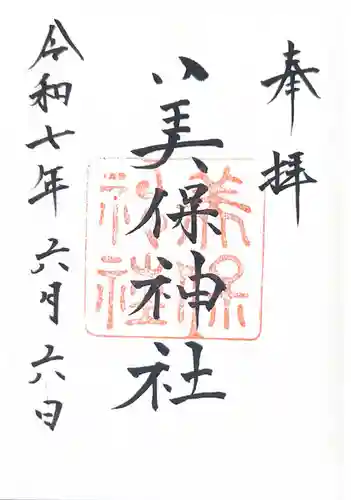 奉拝
美保神社
美保
神社
令和七年 六月 六日